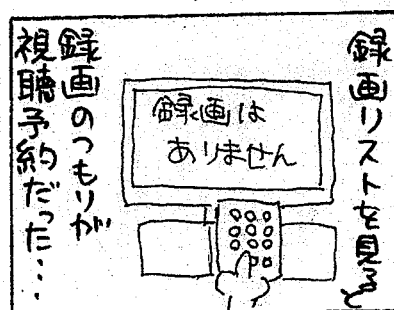 録画リストを見ると
録画は
ありません
録画のつもりが
視聴予約だった・・・